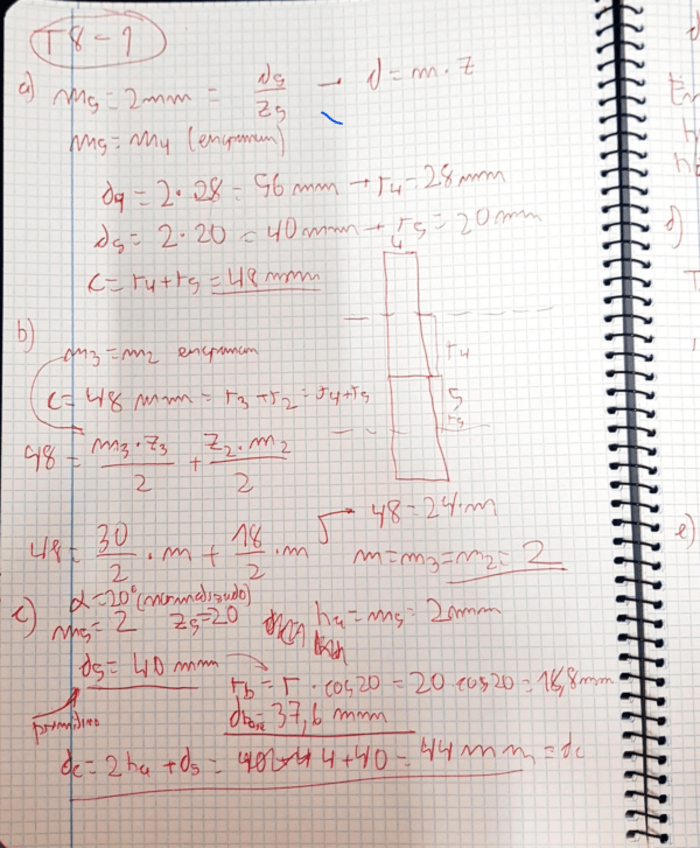 T 8-1
a) m5 = 2mm = d5/z5 → d = m · z
m5 = m4 (engranan)
d4 = 2 · 28 = 56 mm → r4 = 28 mm
d5 = 2 · 20 = 40 mm → r5 = 20 mm
c = r4 + r5 = 48 mm
4
r4
5
r5
b) m3 = m2 engranan
c = 48 mm = r3 + r2 = r4 + r5
48 = m3 · z3 / 2 + z2 · m2 / 2
48 = 30/2 · m + 18/2 · m
48 = 24 · m
m = m3 = m2 = 2
α = 20° (normalizado)
c) m5 = 2 z5 = 20 ha = m5 = 2mm
d5 = 40 mm
rb = r · cos20 = 20 cos20 = 18,8 mm
primitivo
dbase = 37,6 mm
dc = 2ha + d5 = 4 + 40 = 44 mm = dc
e)